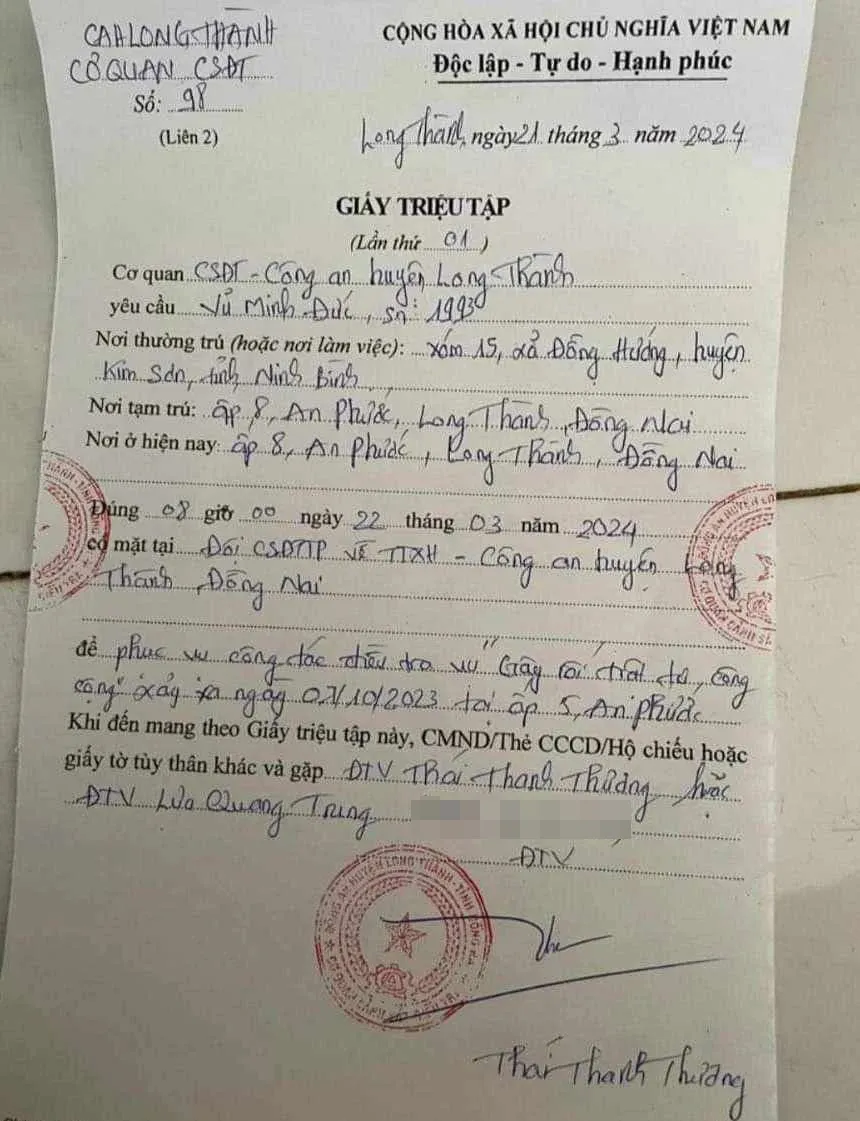 CAH LONG THÀNH
CƠ QUAN CSĐT
Số: 98
(Liên 2)
CỘNG HÒA XÃ HỘI CHỦ NGHĨA VIỆT NAM
Độc lập - Tự do - Hạnh phúc
Long Thành, ngày 21 tháng 3 năm 2024
GIẤY TRIỆU TẬP
(Lần thứ 01)
Cơ quan CSĐT - Công an huyện Long Thành
yêu cầu Vũ Minh Đức, sn: 1993
Nơi thường trú (hoặc nơi làm việc): xóm 15, xã Đồng Hướng, huyện
Kim Sơn, tỉnh Ninh Bình,
Nơi tạm trú: ấp 8, An Phước, Long Thành, Đồng Nai
Nơi ở hiện nay: ấp 8, An Phước, Long Thành, Đồng Nai
Đúng 08 giờ 00 ngày 22 tháng 03 năm 2024
có mặt tại Đội CSĐTTP về TTXH - Công an huyện Long
Thành, Đồng Nai
để phục vụ công tác điều tra vụ "Gây rối trật tự công
cộng" xảy ra ngày 07/10/2023 tại ấp 5, An Phước
Khi đến mang theo Giấy triệu tập này, CMND/Thẻ CCCD/Hộ chiếu hoặc
giấy tờ tùy thân khác và gặp ĐTV Thái Thanh Thương hoặc
ĐTV Lưu Quang Trung
ĐTV
Thái Thanh Thương